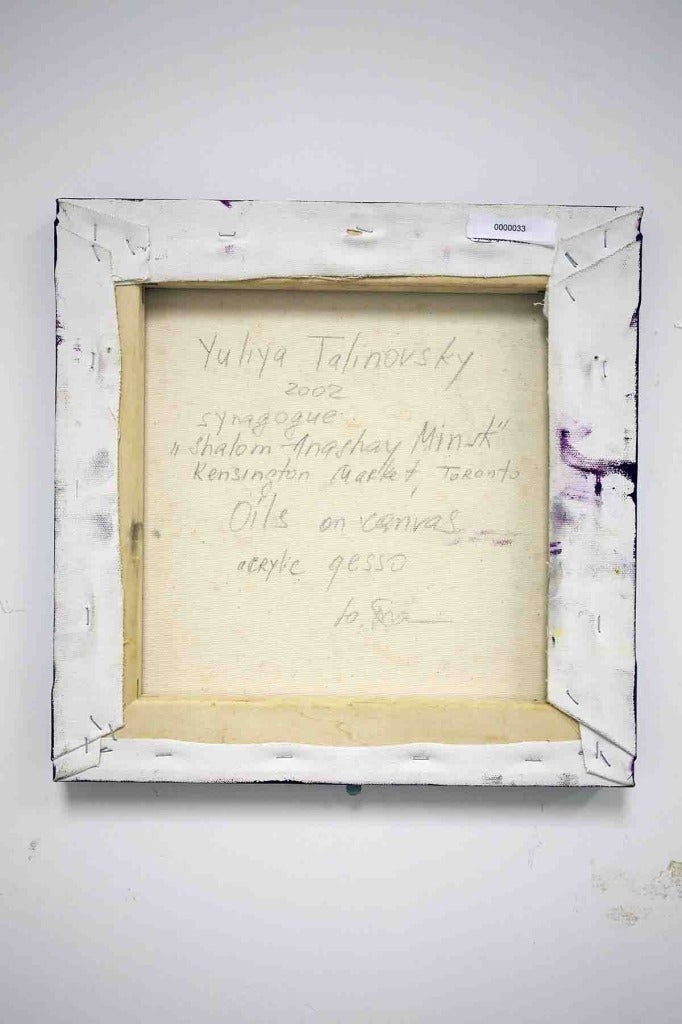 0000033
Yuliya Talinovsky
2002
synagogue
"Shalom Anashay Minsk"
Kensington Market, Toronto
Oils on canvas
acrylic gesso